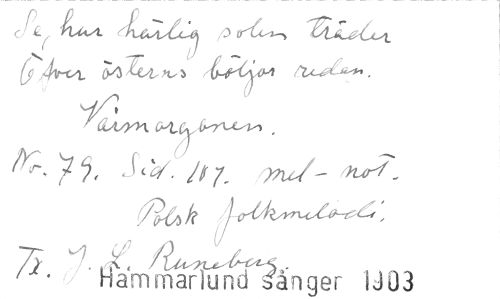 Se, hur härlig solen träder
Öfver österns böljor redan.
Vårmorgonen.
No. 79. Sid. 107. mel-not.
Polsk folkmelodi.
Tx. J. L. Runeberg.
Hammarlund sånger 1903